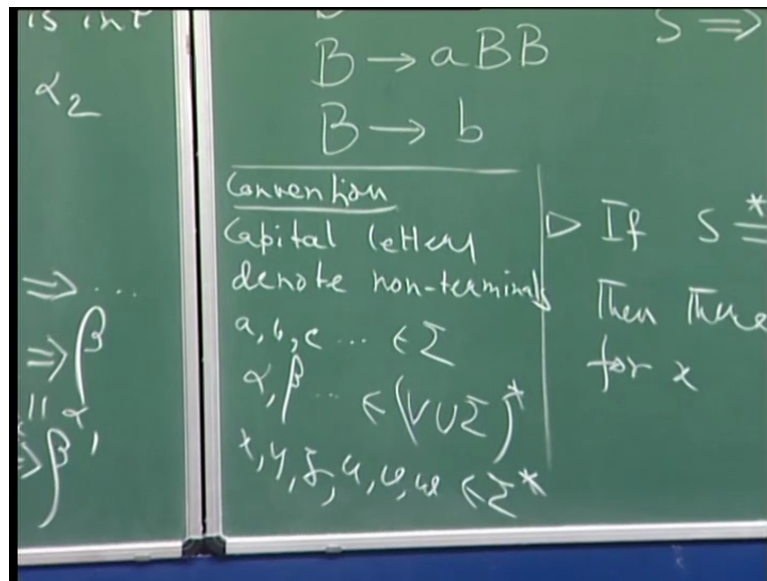 is in
α₂
⇒ ...
⇒ β
|| α,
⇒ β
B → aBB
B → b
Convention
Capital letters
denote non-terminals
a, b, c ... ∈ Σ
α, β ... ∈ (V ∪ Σ)*
x, y, z, u, v, w ∈ Σ*
S ⇒
▷ If S *⇒
Then there
for x